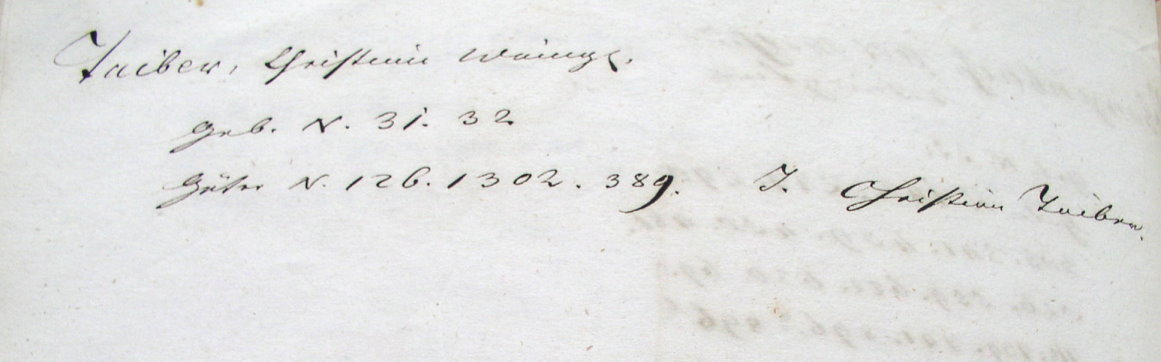 Taiber, Christian Weingr.
Geb. N. 31. 32
Güter N. 126. 1302. 389. J. Christian Taiber.